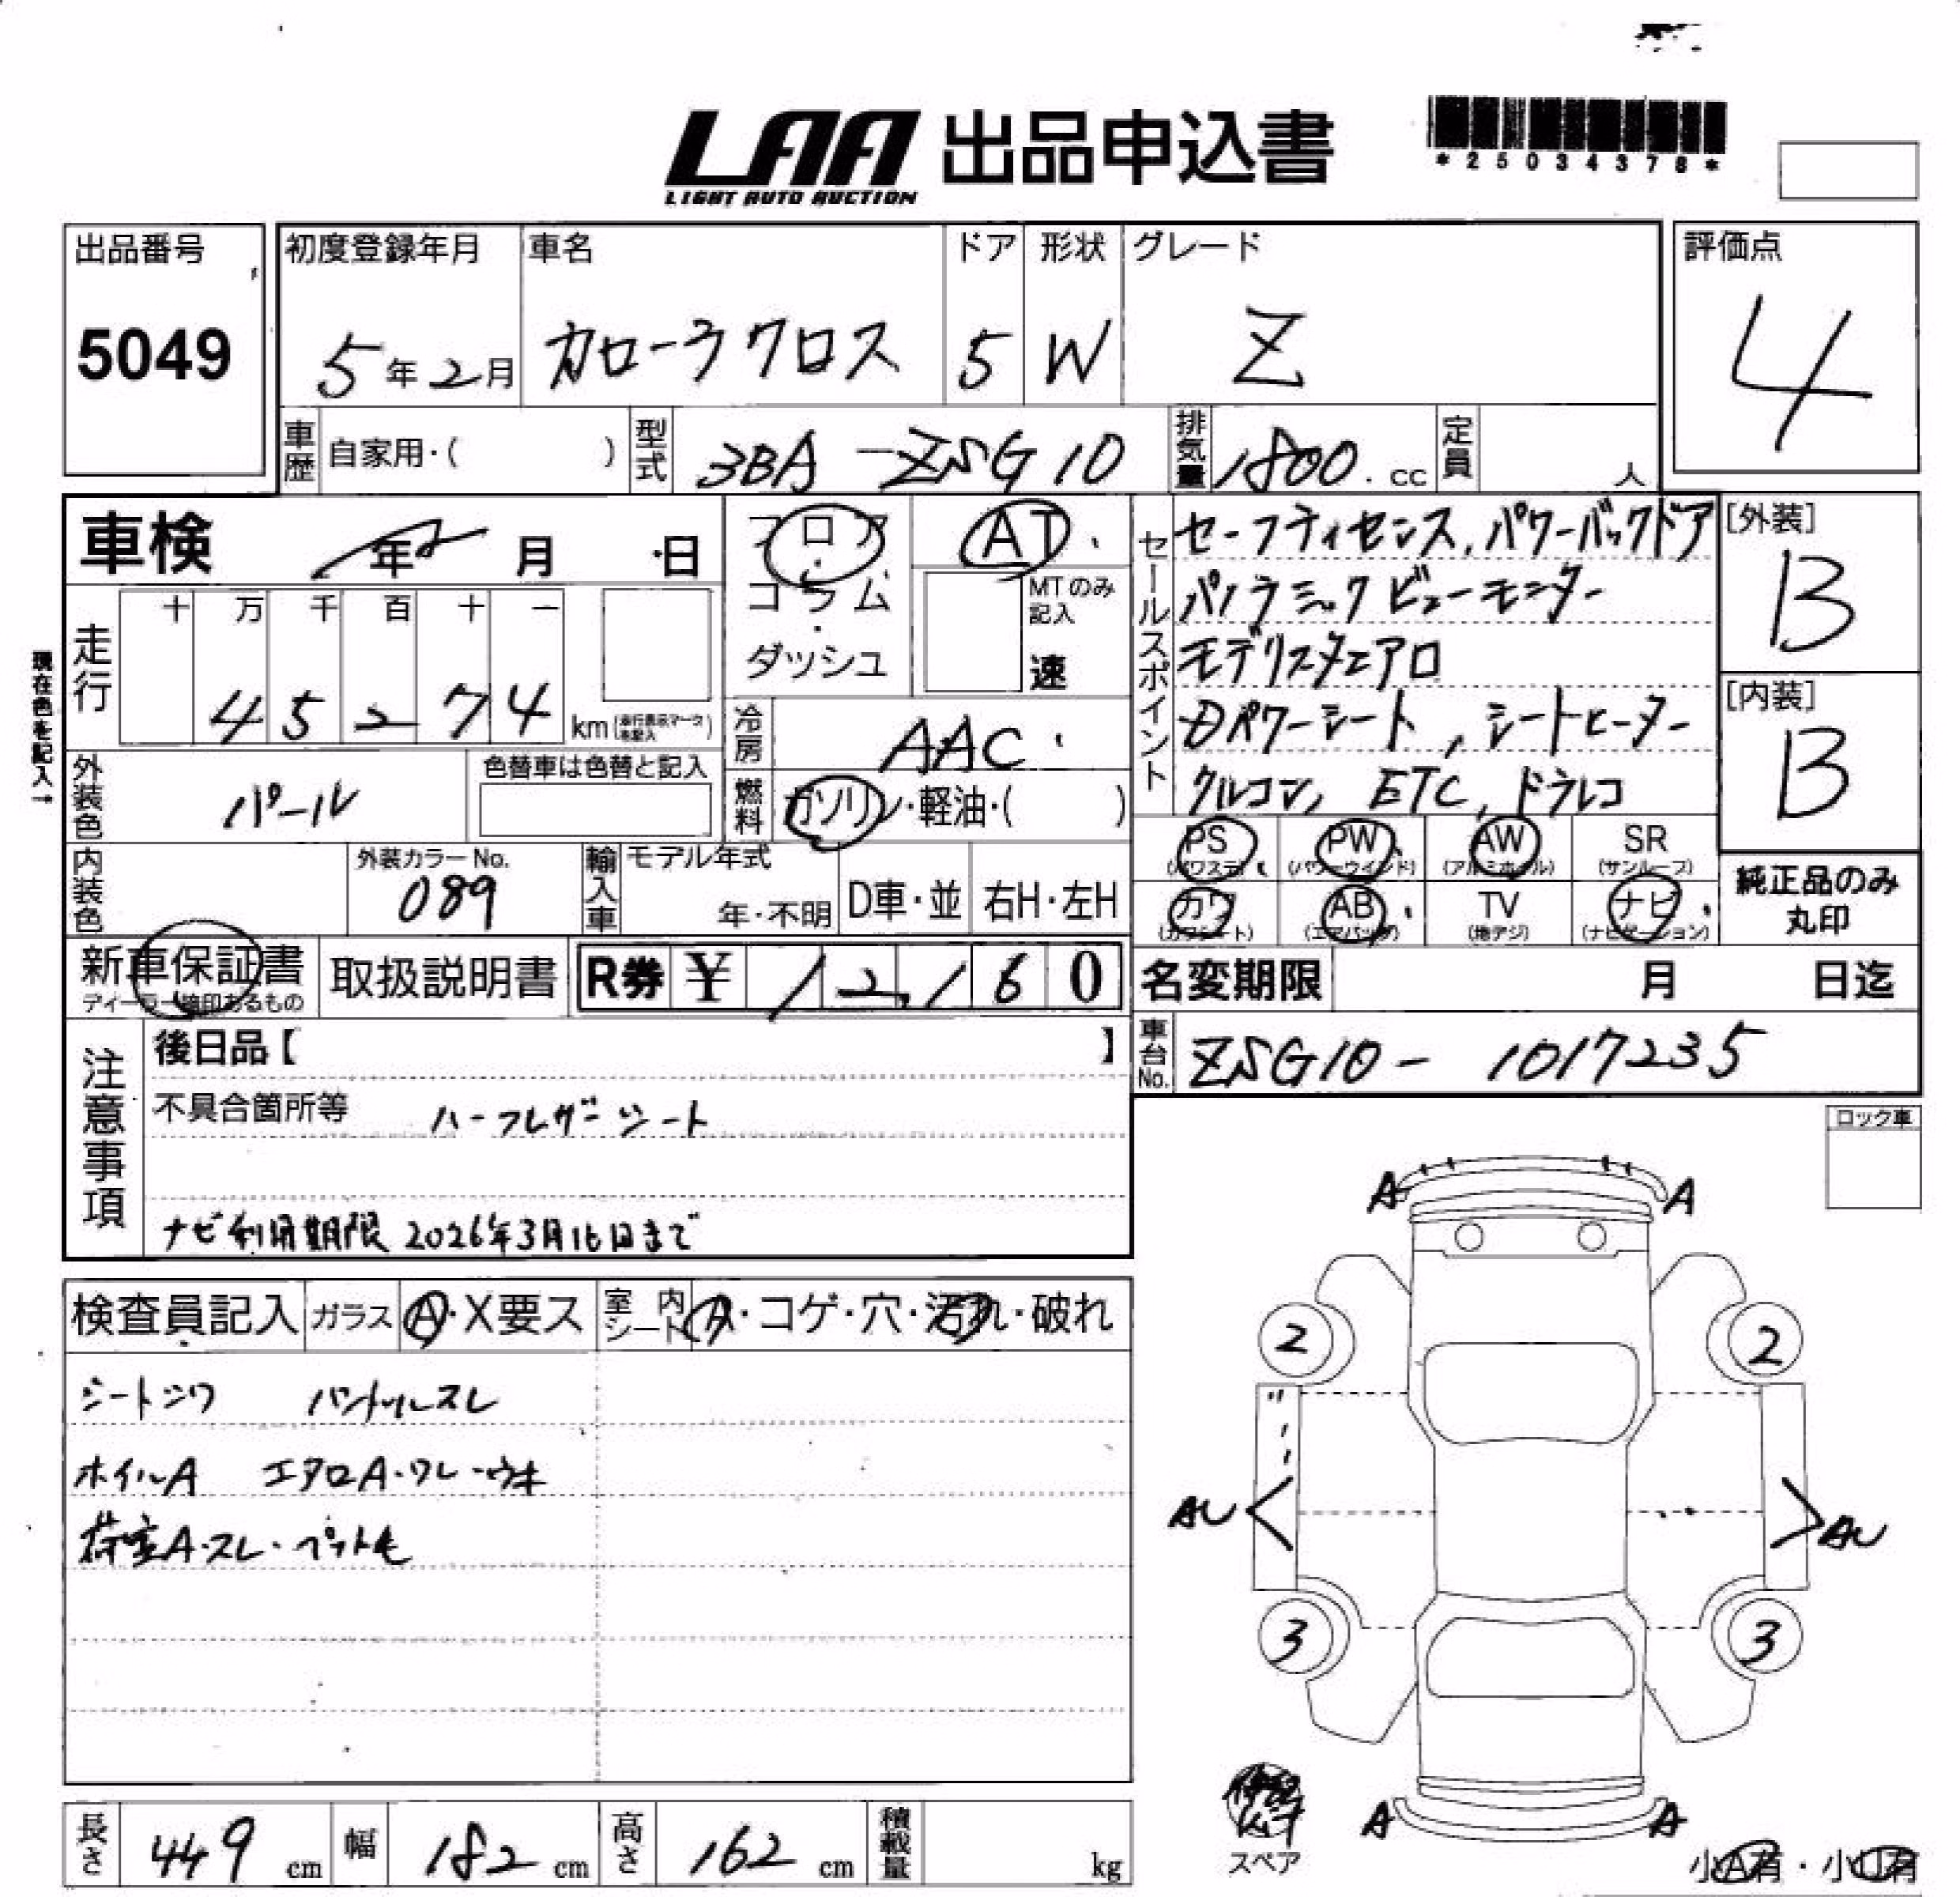 LAA 出品申込書
LIGHT AUTO AUCTION
*25034378*
出品番号
5049
初度登録年月
5年2月
車名
カローラクロス
ドア
5
形状
W
グレード
Z
評価点
4
車歴 自家用・( )
型式 3BA-ZSG10
排気量 1800.cc
定員 人
車検 年 月 日
フロア・コラム・ダッシュ
AT
MTのみ記入
速
走行
十 万 千 百 十 一
4 5 2 7 4 km
現在色を記入→
外装色 パール
色替車は色替と記入
冷房 AAC
燃料 ガソリン・軽油・( )
内装色
外装カラーNo.
089
輸入車 モデル年式
年・不明
D車・並
右H・左H
セールスポイント
セーフティセンス, パワーバックドア
パノラミックビューモニター
モデリスタエアロ
Dパワーシート, シートヒーター
クルコン, ETC, ドラレコ
[外装]
B
[内装]
B
PS PW AW SR
(パワステ) (パワーウインド) (アルミホイル) (サンルーフ)
カワ AB TV ナビ
(カワシート) (エアバッグ) (地デジ) (ナビゲーション)
純正品のみ
丸印
新車保証書
取扱説明書
R券 ¥ 12,160
名変期限 月 日迄
車台No. ZSG10-1017235
注意事項
後日品【 】
不具合箇所等 ハーフレザーシート
ナビ利用期限 2026年3月16日まで
ロック車
検査員記入 ガラス A・X要ス 室内シート A・コゲ・穴・汚れ・破れ
シートシワ ハンドルスレ
ホイルA エアロA・ワレ・ウキ
荷室A・スレ・ペット毛
A A
2 2
AU AU
3 3
A A
スペア
小A有・小U有
長さ 449 cm
幅 182 cm
高さ 162 cm
積載量 kg